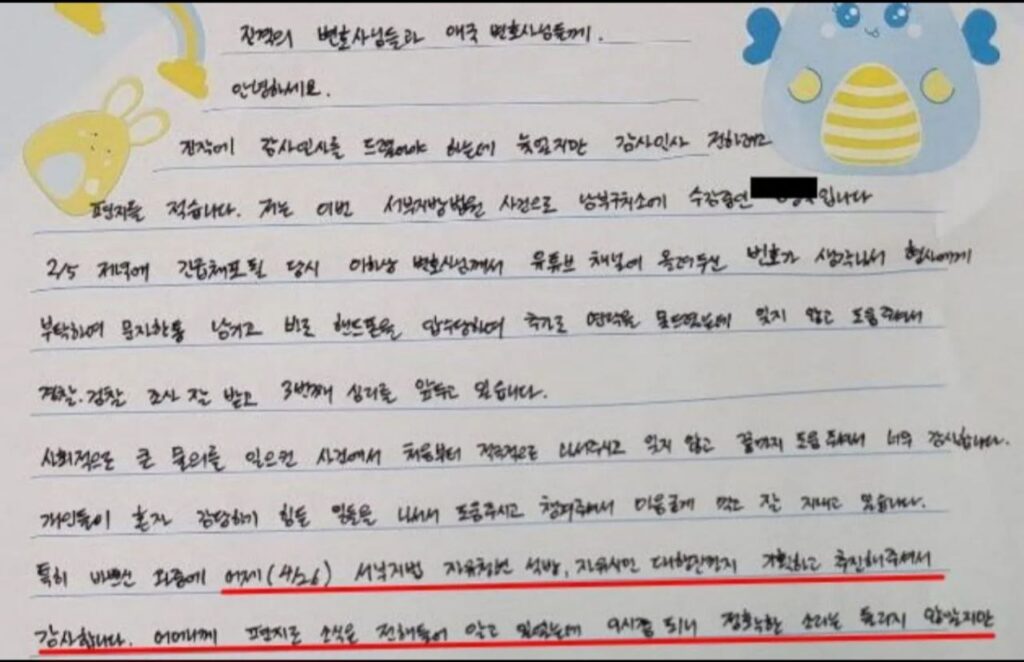 진격의 변호사님들과 애국 변호사님들께.
안녕하세요.
진작에 감사인사를 드렸어야 하는데 늦었지만 감사인사 전하려고
편지를 적습니다. 저는 이번 서부지방법원 사건으로 남부구치소에 수감중인 입니다
2/5 저녁에 긴급체포될 당시 이하상 변호사님께서 유튜브 채널에 올려두신 번호가 생각나서 형사에게
부탁하여 문자한통 남기고 바로 핸드폰을 압수당하여 추가로 연락을 못드렸는데 잊지 않고 도움주셔서
경찰.검찰 조사 잘 받고 3번째 심리를 앞두고 있습니다.
사회적으로 큰 물의를 일으킨 사건에서 처음부터 적극적으로 나서주시고 잊지 않고 끝까지 도움주셔서 너무 감사합니다.
개인들이 혼자 감당하기 힘든 일들을 나서서 도움주시고 챙겨주셔서 마음굳게 먹고 잘 지내고 있습니다.
특히 바쁘신 와중에 어제(4/26) 서부지법 자유청년 석방, 자유시민 대행진까지 기획하고 추진해주셔서
감사합니다. 어머니께 편지로 소식은 전해들어 알고 있었는데 9시쯤 되니 정확한 소리는 들리지 않았지만